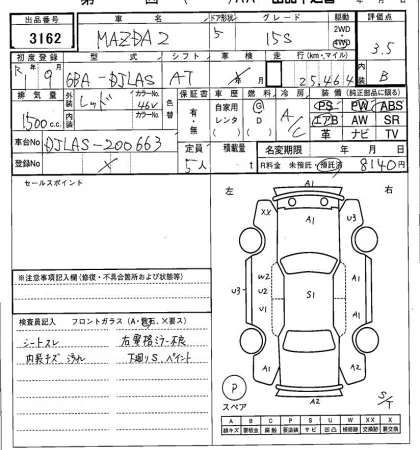 出品番号 車名 ドア形状 グレード 駆動 評価点
3162 MAZDA2 5 15S 2WD 4WD 3.5
初度登録 型式 シフト 車検 走行(km・マイル) 内装
R1 9月 6BA-DJLAS AT 25,464 B
排気量 外装 レッド カラーNo. 46V 色替 保証書 車歴 燃料 冷房 装備(純正部品に限る)
1500c.c. 内装 カラーNo. 有・無 自家用 レンタ G D A/C PS PW ABS
エアB AW SR
革 ナビ TV
車台No DJLAS-200663 定員 積載量 名変期限 年 月 日
登録No 5人 t R料金 未預託・預託済 8140円
セールスポイント 左 右
A1
XX A1 U3
A1
W2
U3 V2 S1 A1
U1
※注意事項記入欄(修復・不具合箇所および状態等)
検査員記入 フロントガラス(A・飛石、×要ス)
シートスレ 右電格ミラー不良
内装キズ 汚れ 下廻りS、ペイント
A1
A2 A2
P
スペア A2 S/T
A B C P S U W X XX X
線キズ 要鈑金 腐蝕 要塗装 サビ 凹凸 補修跡 交換跡 要交換